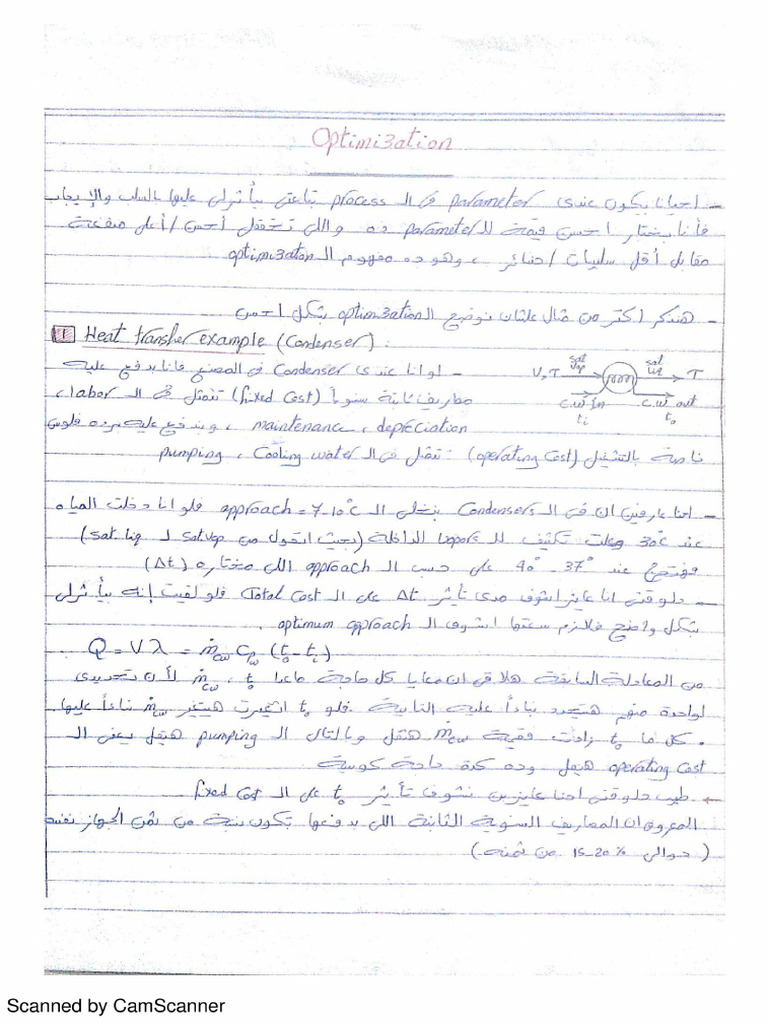 Optimization
- احيانا بيكون عندى parameter فى الـ process بتاعتى بيأثرلى عليها بالسلب والإيجاب
فأنا بختار احسن قيمة للـ parameter ده واللى تحققلى أحسن / أعلى منفعة
مقابل أقل سلبيات / خسائر ، وهو ده مفهوم الـ optimization
- هنذكر اكتر من مثال علشان نوضح الـ optimization بشكل احسن
1 Heat transfer example (Condenser) :
- لو انا عندى Condenser فى المصنع فانا بدفع عليه
مصاريف ثابتة سنوياً (fixed Cost) تتمثل فى الـ labor ،
maintenance ، depreciation ، وبندفع عليه برده فلوس
خاصة بالتشغيل (operating Cost) : تتمثل فى الـ Cooling water ، pumping
V, T sat vap sat liq T
C.W in ti C.W out to
- احنا عارفين ان فى الـ Condensers بنخلى الـ approach = 7-10°C فلو انا دخلت المياه
عند 30°C وعملت تكثيف للـ vapor الداخلة (بحيث اتحول من sat vap لـ sat liq)
فهتخرج عند 37° - 40° على حسب الـ approach اللى مختاره (Δt)
- دلوقتى انا عايز اشوف مدى تأثير Δt على الـ Total Cost فلو لقيت إنه بيأثرلى
بشكل واضح فلازم ساعتها اشوف الـ optimum approach .
Q = V λ = ṁcw Cpw (to - ti)
من المعادلة السابقة هلاقى ان معايا كل حاجة ماعدا to ، ṁcw لأن تحديدى
لواحدة منهم هتحدد بناءاً عليه التانية . فلو to اتغيرت هيتغير ṁcw بناءاً عليها
. كل ما to زادت فقيمة ṁcw هتقل وبالتالى الـ pumping هيقل يعنى الـ
operating Cost هيقل وده كدة حاجة كويسة
← طيب دلوقتى احنا عايزين نشوف تأثير to على الـ fixed Cost
المعروف ان المصاريف السنوية الثابتة اللى بدفعها بتكون نسبة من تمن الجهاز نفسه
(حوالى 15-20% من تمنه)
Scanned by CamScanner